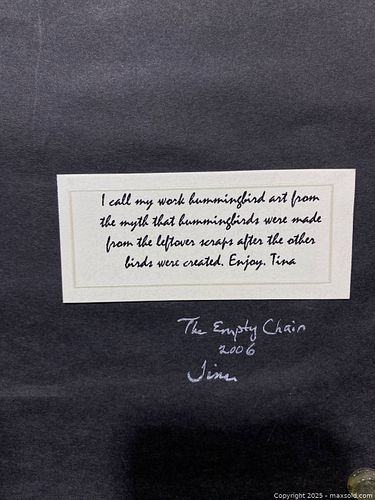 I call my work hummingbird art from
the myth that hummingbirds were made
from the leftover scraps after the other
birds were created. Enjoy. Tina
The Empty Chain
2006
Tina
Copyright 2025 - maxsold.com